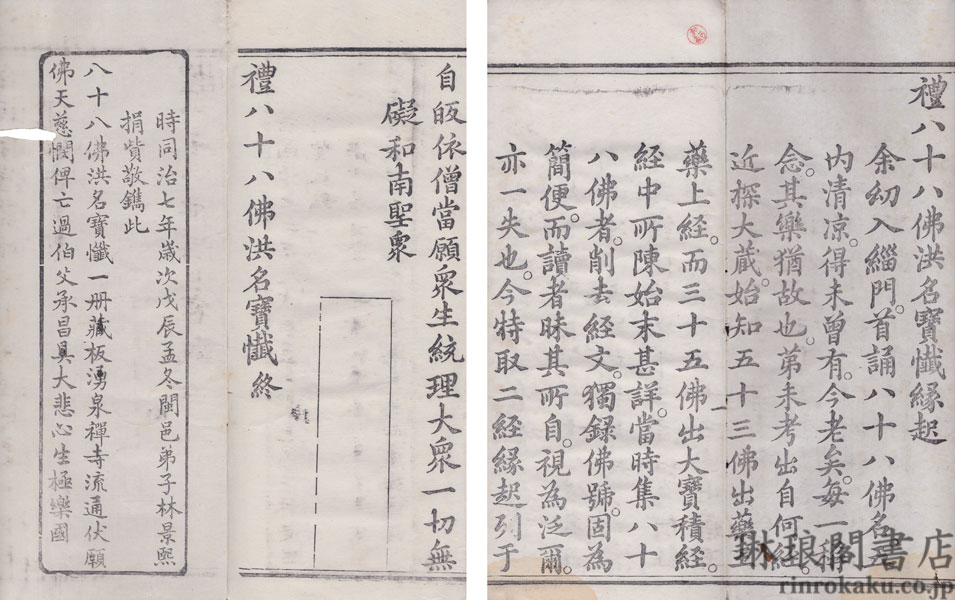 禮八十八佛洪名寶懺緣起
余幼入緇門。首誦八十八佛名。五
内清凉。得未曾有。今老矣。每一稱
念。其樂猶故也。第未考出自何經。
近探大藏。始知五十三佛出藥王
藥上經。而三十五佛出大寶積經。
經中所陳始末甚詳。當時集八十
八佛者。削去經文。獨錄佛號。固為
簡便。而讀者昧其所自。視為泛爾。
亦一失也。今特取二經緣起列于
自皈依僧當願衆生統理大衆一切無
礙和南聖衆
禮八十八佛洪名寶懺終
時同治七年歲次戊辰孟冬閩邑弟子林景熙
捐貲敬鐫此
八十八佛洪名寶懺一册藏板湧泉禪寺流通伏願
佛天慈憫俾亡過伯父承昌具大悲心生極樂國
琳琅閣書店
rinrokaku.co.jp